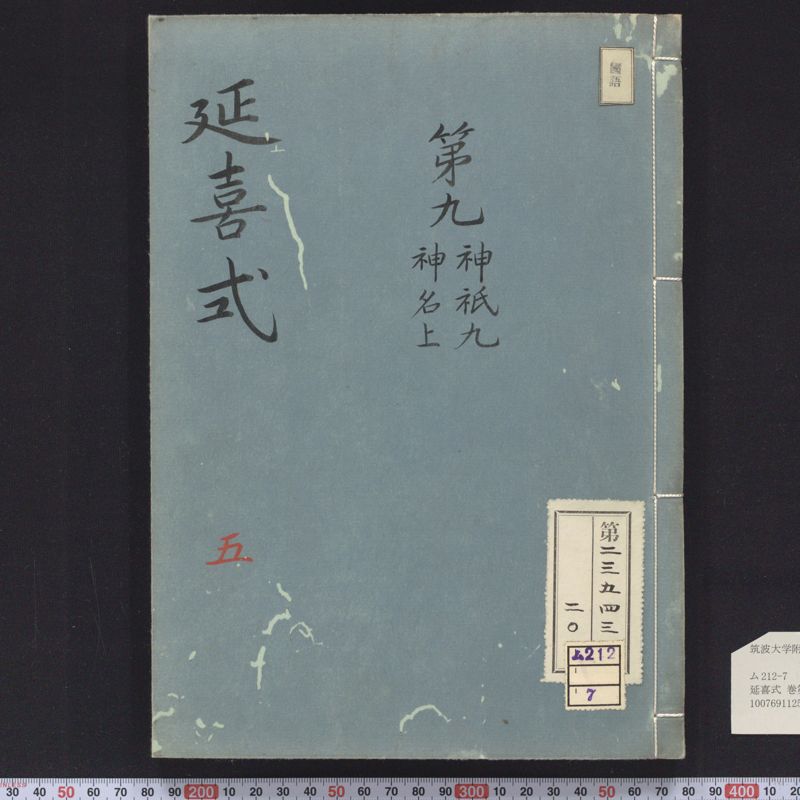 國語
第九
神祇九
神名上
延喜式
五
第二三九四三
二〇
ム212
7
筑波大学附
ム212-7
延喜式 巻
1007691125
30 40 50 60 70 80 90 200 10 20 30 40 50 60 70 80 90 300 10 20 30 40 50 60 70 80 90 400 10 20